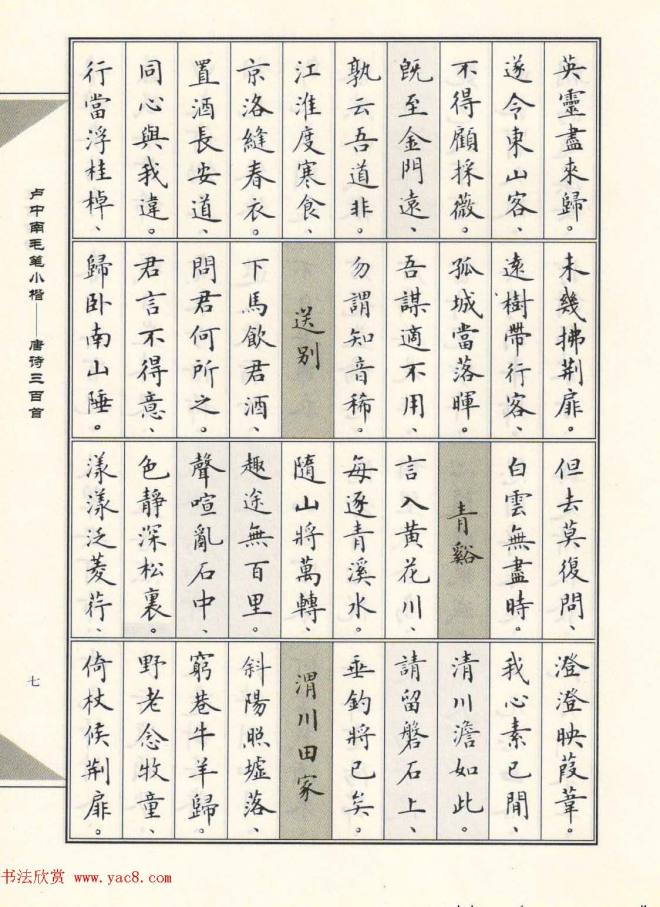 英靈盡來歸。
遂令東山客、
不得顧採薇。
既至金門遠、
孰云吾道非。
江淮度寒食、
京洛縫春衣。
置酒長安道、
同心與我違。
行當浮桂棹、
未幾拂荆扉。
遠樹帶行客、
孤城當落暉。
吾謀適不用、
勿謂知音稀。
送别
下馬飲君酒、
問君何所之。
君言不得意、
歸卧南山陲。
但去莫復問、
白雲無盡時。
青谿
言入黄花川、
每逐青溪水。
隨山將萬轉、
趣途無百里。
聲喧亂石中、
色靜深松裏。
漾漾泛菱荇、
澄澄映葭葦。
我心素已閒、
清川澹如此。
請留磐石上、
垂釣將已矣。
渭川田家
斜陽照墟落、
窮巷牛羊歸。
野老念牧童、
倚杖候荆扉。
卢中南毛笔小楷——唐诗三百首
七
书法欣赏 www.yac8.com